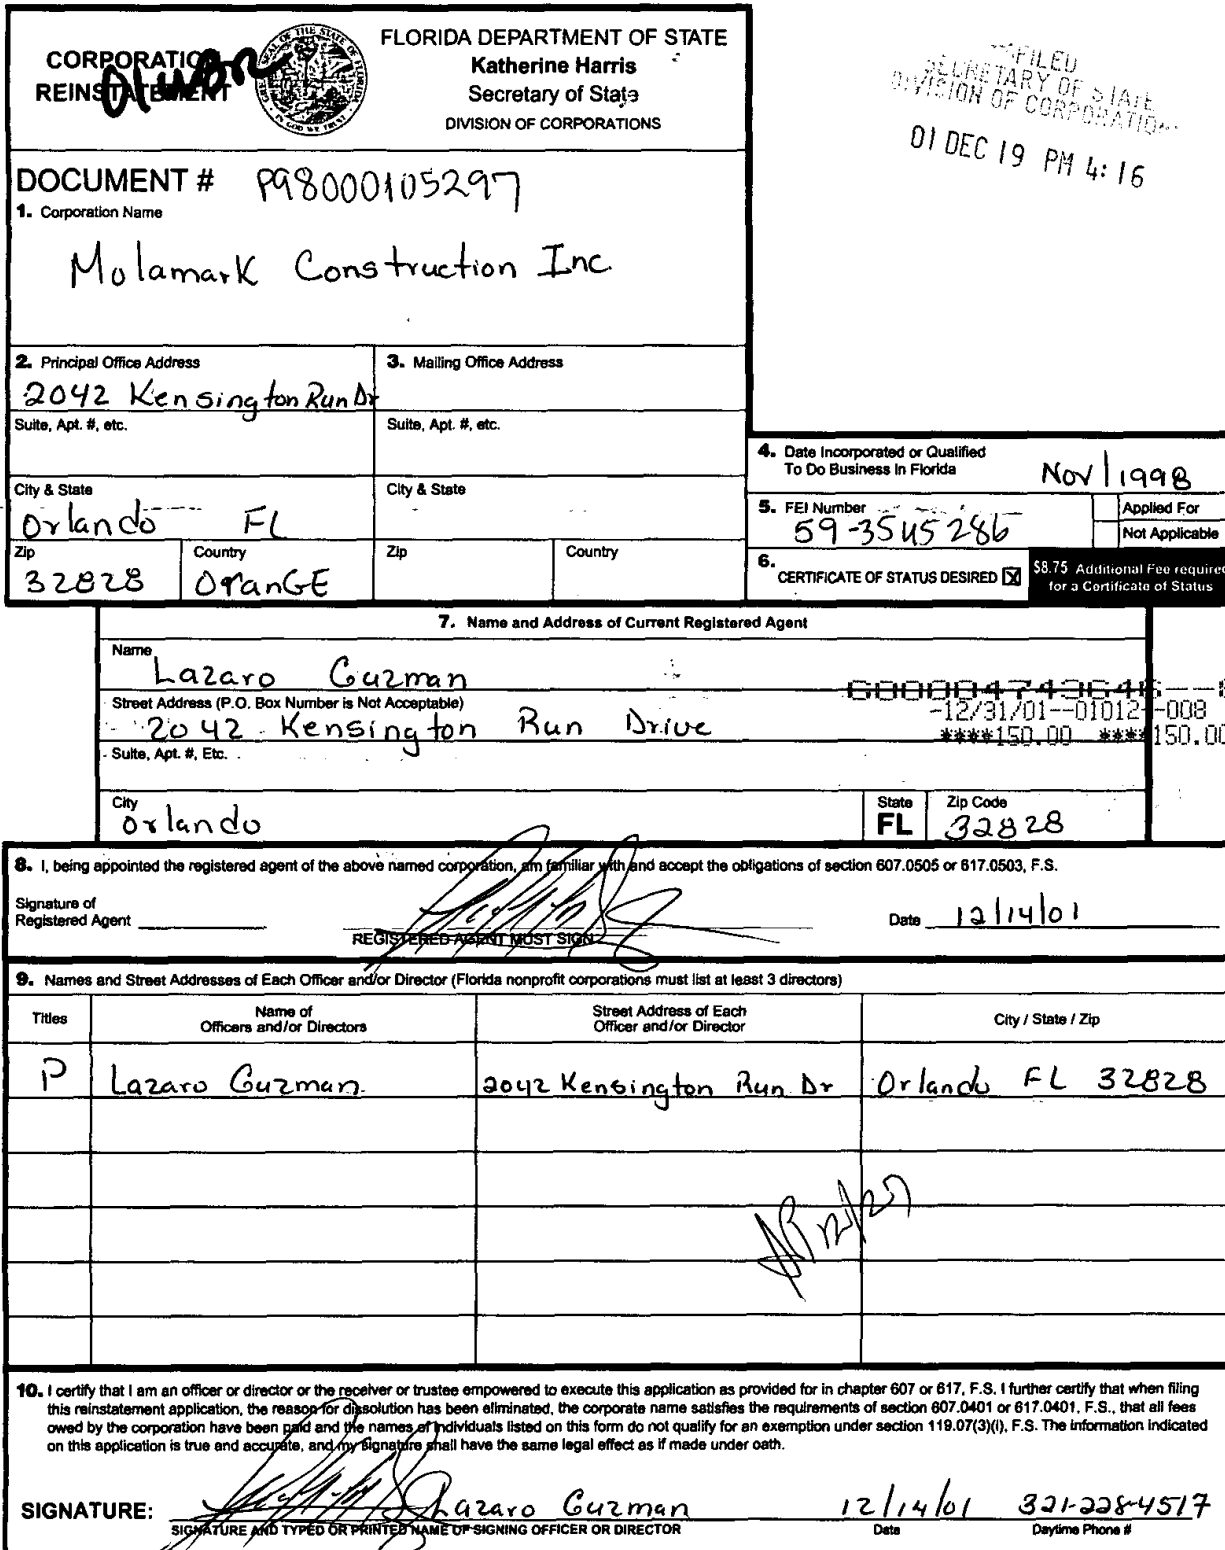 CORPORATION
REINSTATEMENT
FLORIDA DEPARTMENT OF STATE
Katherine Harris
Secretary of State
DIVISION OF CORPORATIONS
FILED
SECRETARY OF STATE
DIVISION OF CORPORATIONS
01 DEC 19 PM 4:16
DOCUMENT # P98000105297
1. Corporation Name
Molamark Construction Inc.
2. Principal Office Address
2042 Kensington Run Dr
Suite, Apt. #, etc.
City & State
Orlando FL
Zip
32828
Country
OranGE
3. Mailing Office Address
Suite, Apt. #, etc.
City & State
Zip
Country
4. Date Incorporated or Qualified
To Do Business in Florida
Nov/1998
5. FEI Number
59-3545286
Applied For
Not Applicable
6. CERTIFICATE OF STATUS DESIRED X
$8.75 Additional Fee require
for a Certificate of Status
7. Name and Address of Current Registered Agent
Name
Lazaro Guzman
Street Address (P.O. Box Number is Not Acceptable)
2042 Kensington Run Drive
Suite, Apt. #, Etc.
-12/31/01--01012--008
****150.00 ****150.00
City
Orlando
State
FL
Zip Code
32828
8. I, being appointed the registered agent of the above named corporation, am familiar with and accept the obligations of section 607.0505 or 617.0503, F.S.
Signature of
Registered Agent
REGISTERED AGENT MUST SIGN
Date 12/14/01
9. Names and Street Addresses of Each Officer and/or Director (Florida nonprofit corporations must list at least 3 directors)
Titles
Name of
Officers and/or Directors
Street Address of Each
Officer and/or Director
City / State / Zip
P Lazaro Guzman. 2042 Kensington Run Dr Orlando FL 32828
12/27
10. I certify that I am an officer or director or the receiver or trustee empowered to execute this application as provided for in chapter 607 or 617, F.S. I further certify that when filing
this reinstatement application, the reason for dissolution has been eliminated, the corporate name satisfies the requirements of section 607.0401 or 617.0401, F.S., that all fees
owed by the corporation have been paid and the names of individuals listed on this form do not qualify for an exemption under section 119.07(3)(i), F.S. The information indicated
on this application is true and accurate, and my signature shall have the same legal effect as if made under oath.
SIGNATURE: Lazaro Guzman 12/14/01 321-228-4517
SIGNATURE AND TYPED OR PRINTED NAME OF SIGNING OFFICER OR DIRECTOR
Date
Daytime Phone #